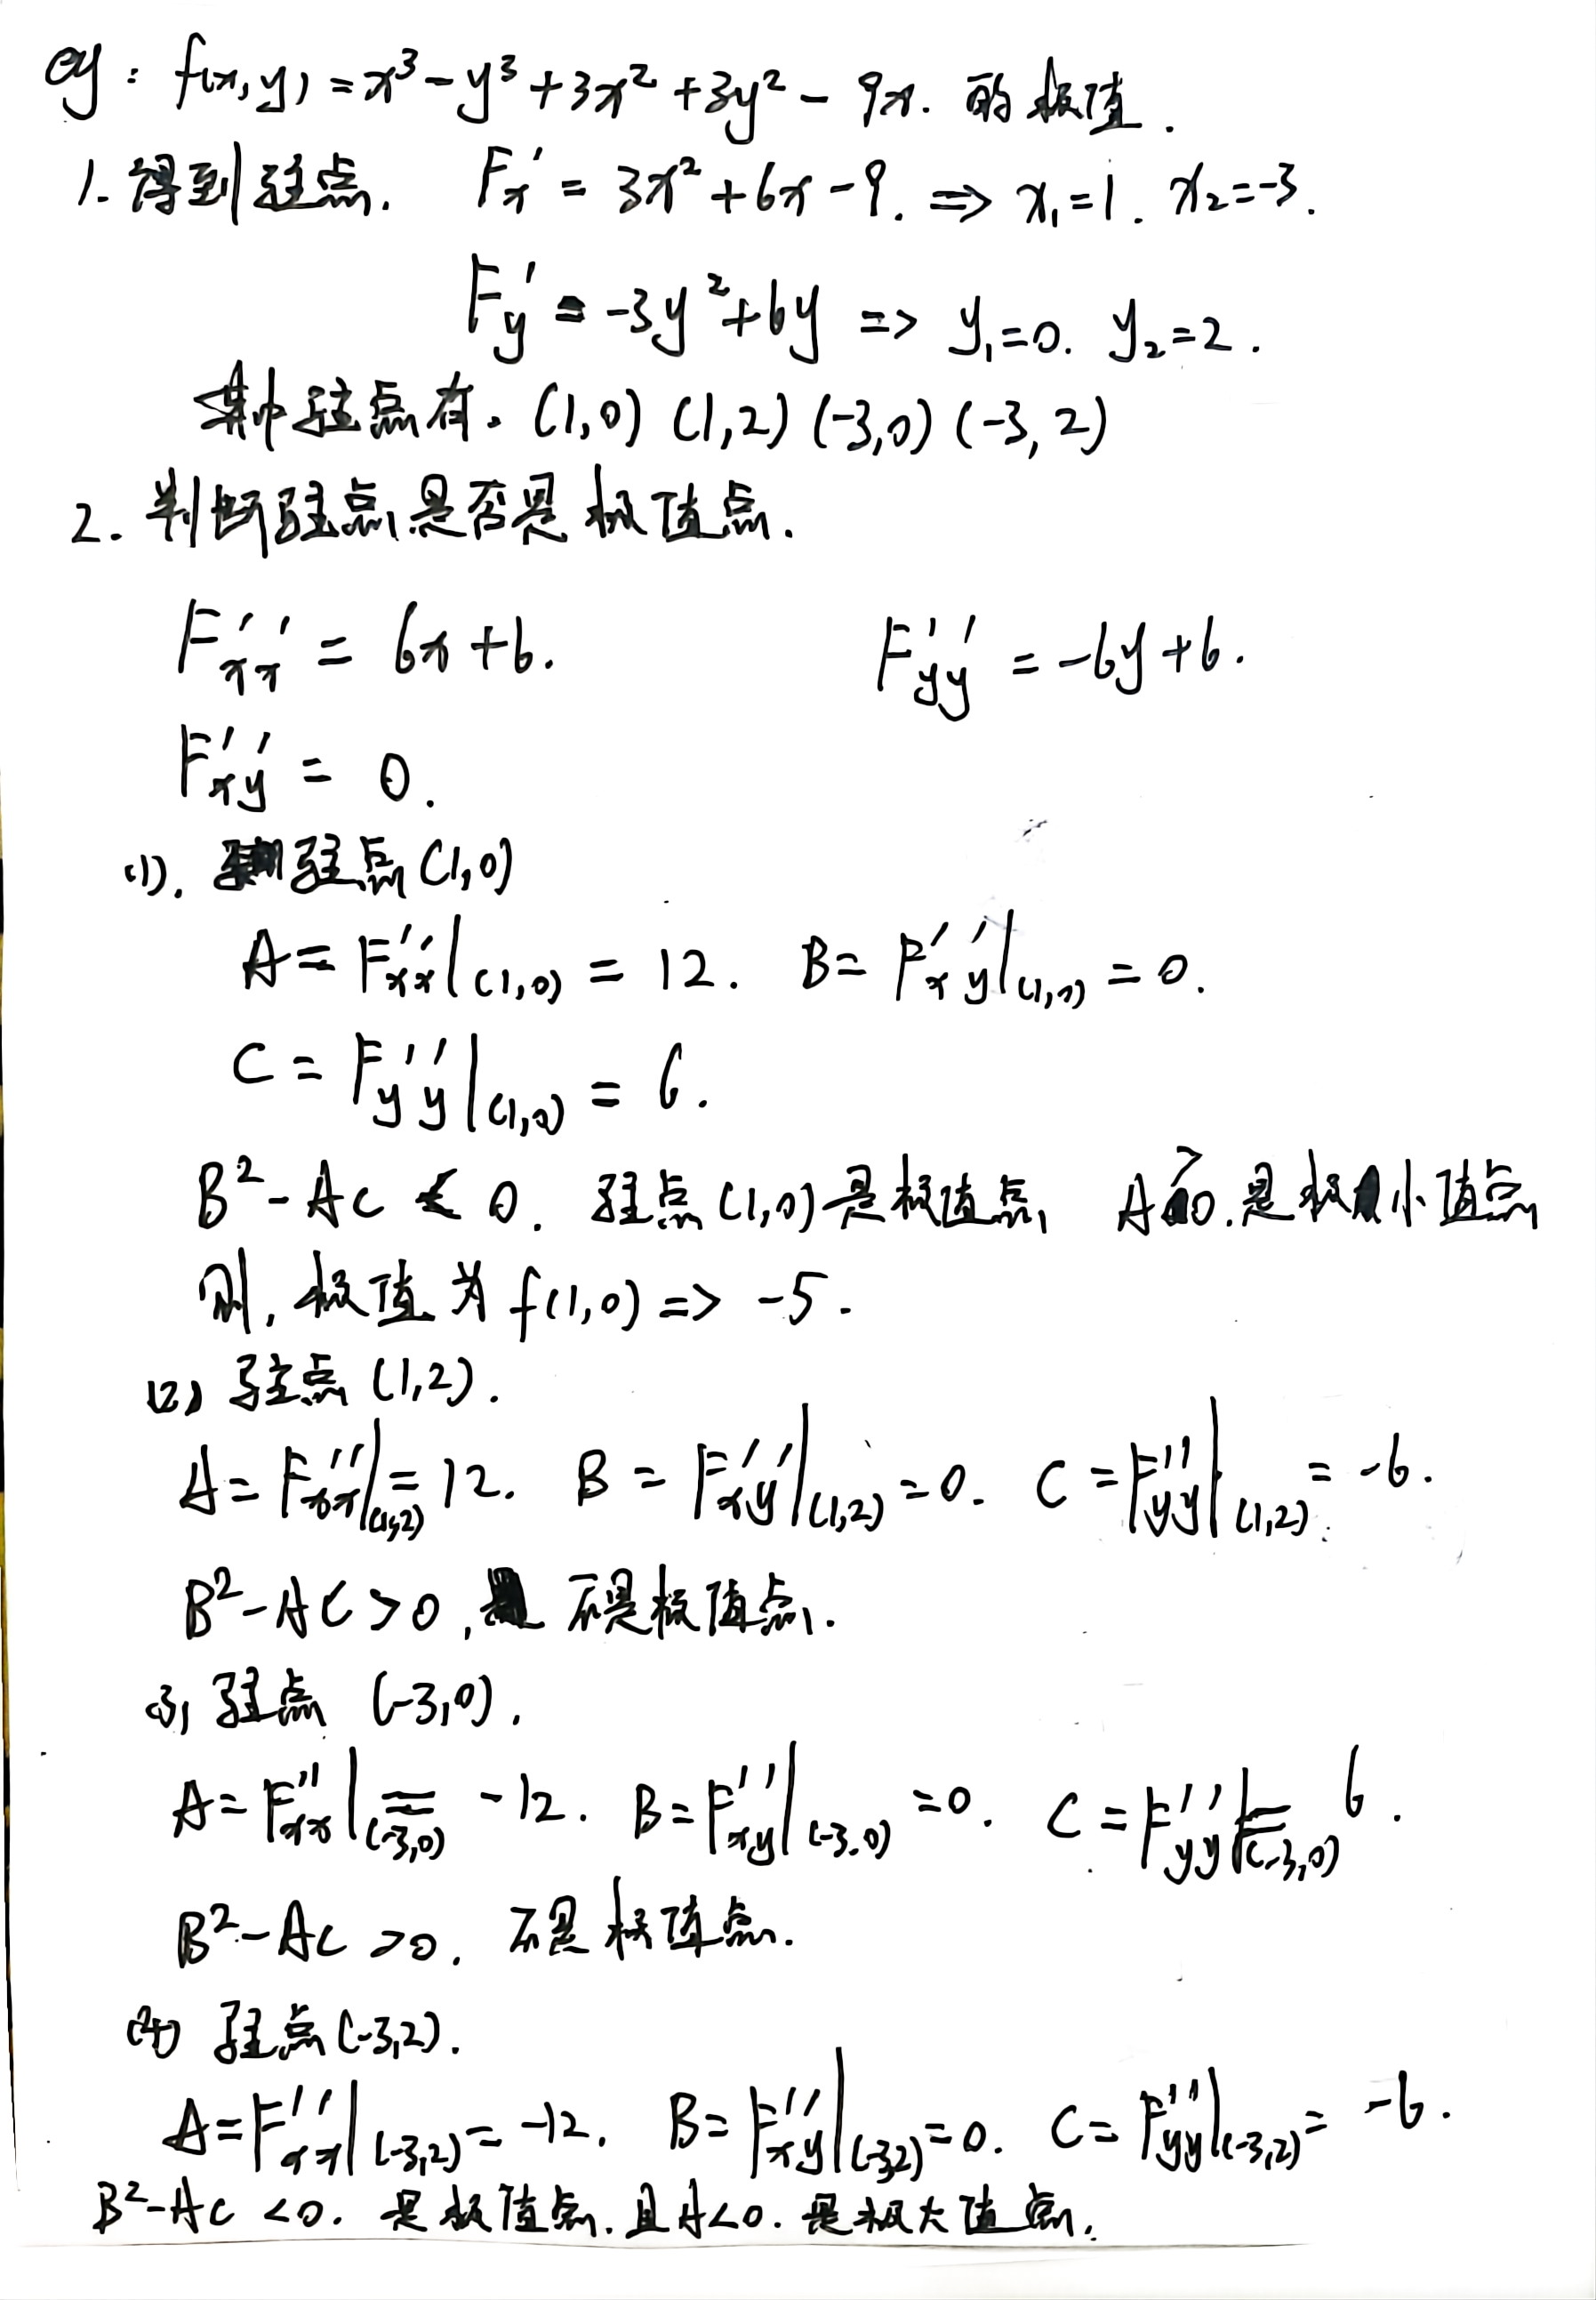 eg: f(x,y) = x³ - y³ + 3x² + 3y² - 9x. 的极值.
1. 得到驻点. Fx' = 3x² + 6x - 9. => x₁=1. x₂=-3.
Fy' = -3y² + 6y => y₁=0. y₂=2.
其中驻点有. (1,0) (1,2) (-3,0) (-3,2)
2. 判断驻点是否是极值点.
F''xx = 6x+6. F''yy = -6y+6.
F''xy = 0.
(1). 驻点(1,0)
A = F''xx|(1,0) = 12. B = F''xy|(1,0) = 0.
C = F''yy|(1,0) = 6.
B²-AC < 0. 驻点(1,0)是极值点 A>0.是极小值点
则, 极值为f(1,0) => -5.
(2) 驻点(1,2).
A = F''xx|(1,2) = 12. B = F''xy|(1,2) = 0. C = F''yy|(1,2) = -6.
B²-AC>0, 不是极值点.
(3) 驻点 (-3,0).
A = F''xx|(-3,0) = -12. B = F''xy|(-3,0) = 0. C = F''yy|(-3,0) = 6.
B²-AC >0. 不是极值点.
(4) 驻点(-3,2).
A = F''xx|(-3,2) = -12. B = F''xy|(-3,2) = 0. C = F''yy|(-3,2) = -6.
B²-AC <0. 是极值点. 且A<0. 是极大值点.